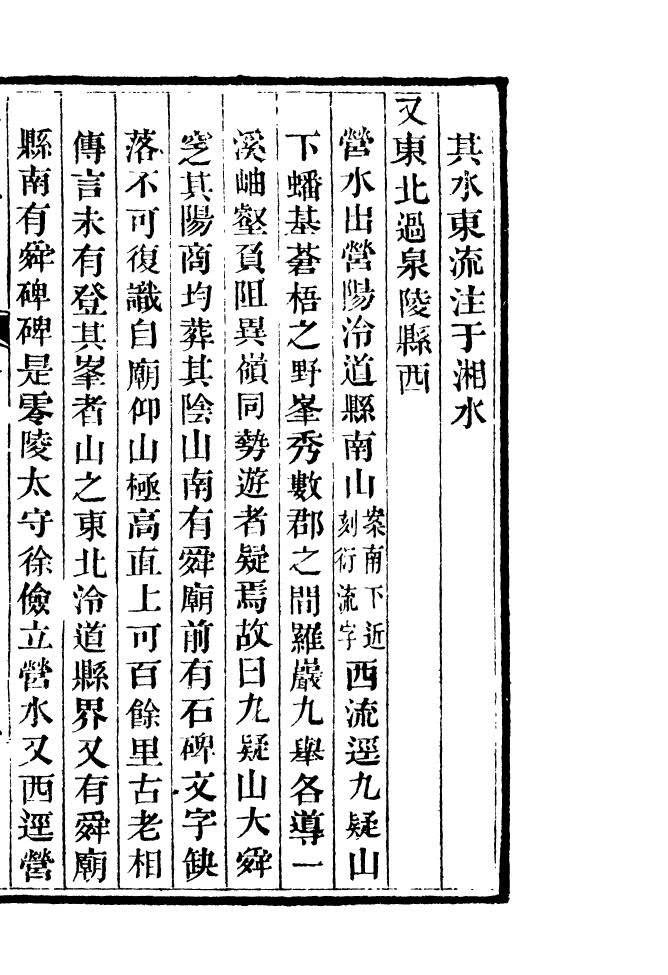 其水東流注于湘水
又東北過泉陵縣西
營水出營陽泠道縣南山案南下近刻衍流字西流逕九疑山
下蟠基蒼梧之野峯秀數郡之間羅巖九舉各導一
溪岫壑負阻異嶺同勢遊者疑焉故曰九疑山大舜
窆其陽商均葬其陰山南有舜廟前有石碑文字缺
落不可復識自廟仰山極高直上可百餘里古老相
傳言未有登其峯者山之東北泠道縣界又有舜廟
縣南有舜碑碑是零陵太守徐儉立營水又西逕營